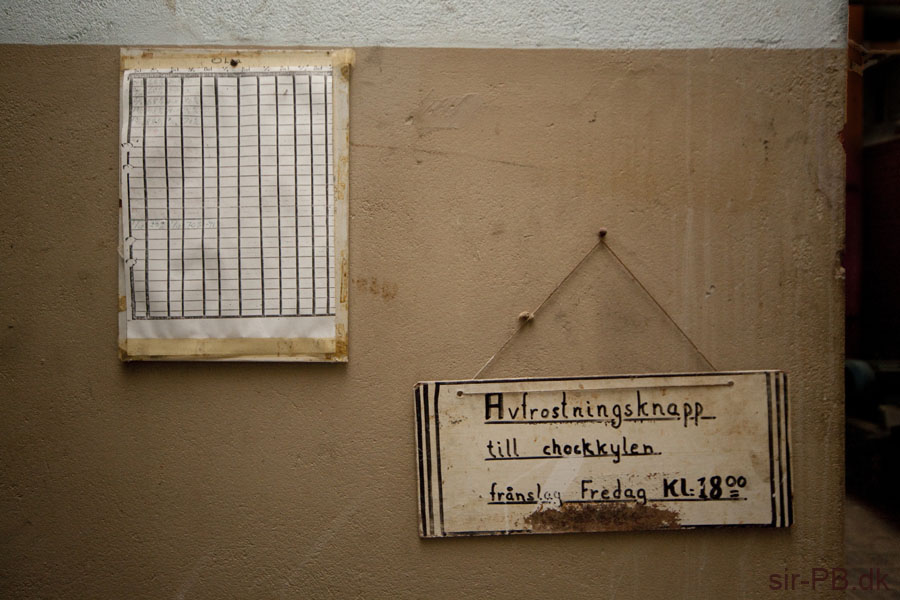 Avfrostningsknapp
till chockkylen
frånslag Fredag KL. 18⁰⁰
sir-PB.dk